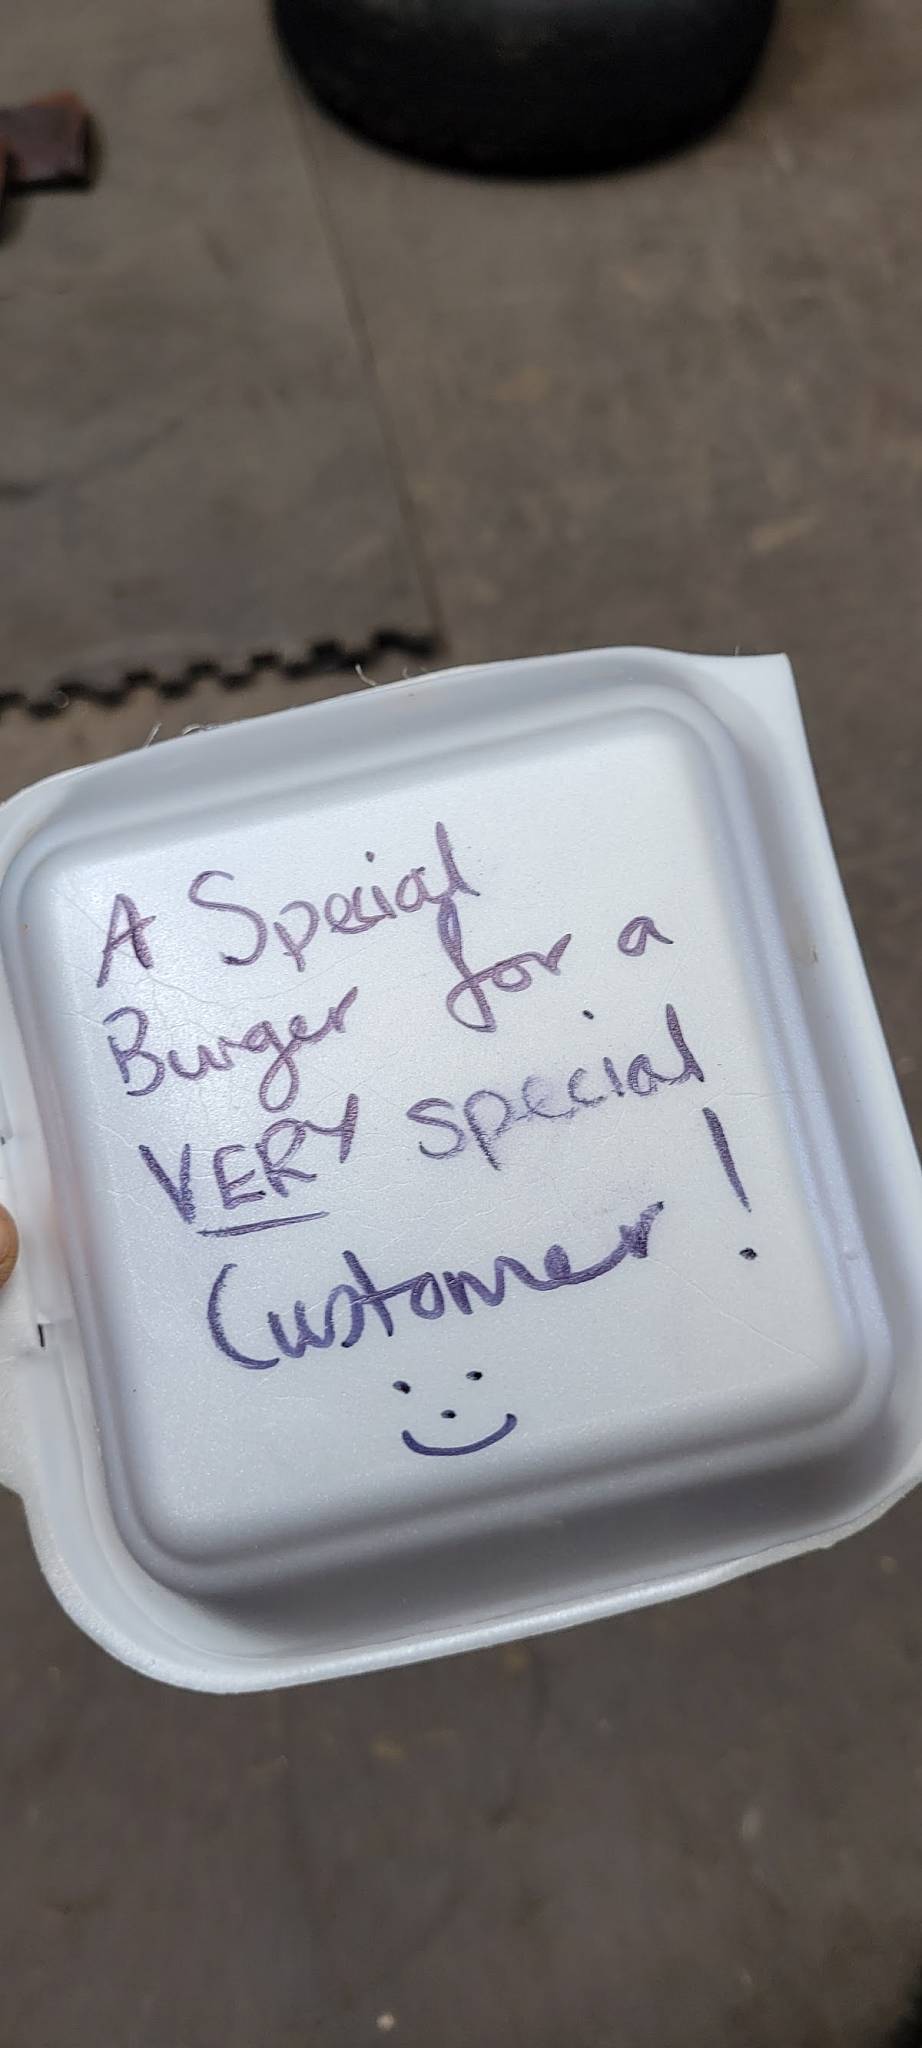 A Special
Burger for a
VERY special
Customer!